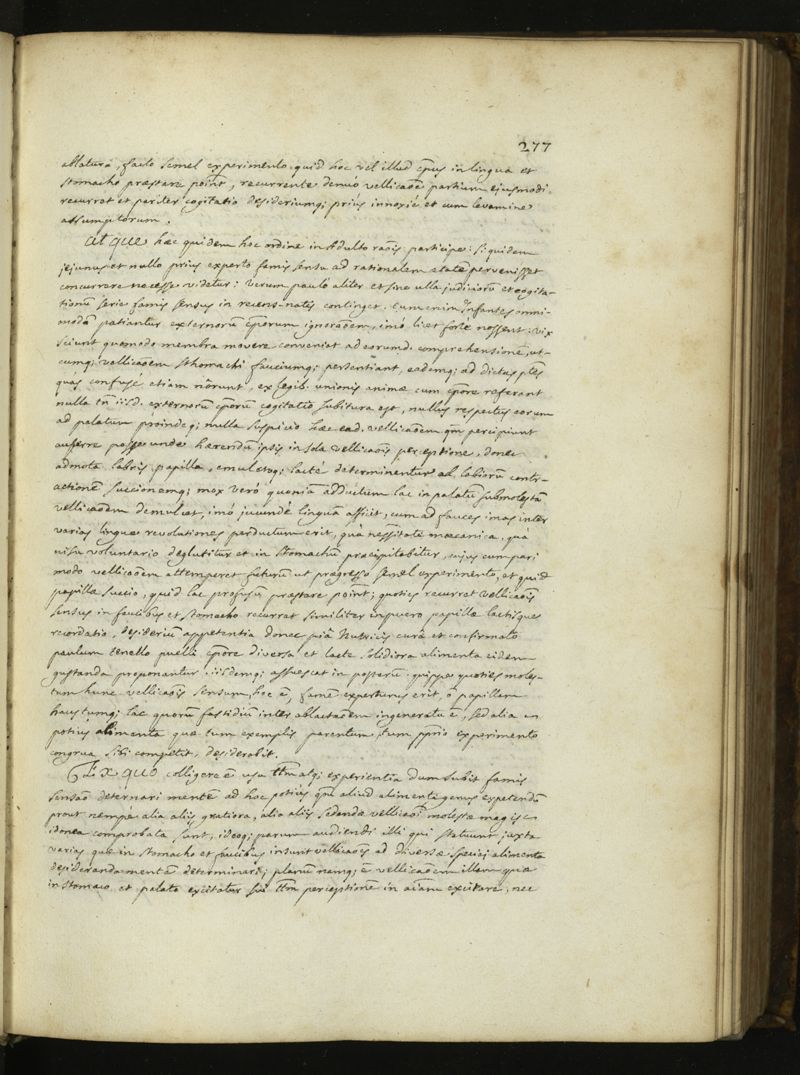 277
ablaturâ, facto semel experimento quid hoc vel illud cpus in lingua et
stomacho præstare point, recurrente denuo vellicaõe partium ejusmodi
recurrat et pariter cogitatio desideriumq; prius innoxiè et cum levamine
assumptorum.
Atque hæc quidem hoc ordine in Adulto raõis participe: si quidem
jejunus et nullo prius experto famis sensu ad rationalem ætatẽ pervenisset
concurrere necesse videtur: verum paulò aliter et sine ulla judiciorũ et cogita-
tionũ serie famis sensus in recens-natis continget. Cum enim Infantes omni-
modã patiantur externorũ cporum ignoraõem, imò licet forte nossent: vix
sciunt quomodo membra movere conveniat ad eorumd. comprehensionẽ, ut-
cumq; vellicaõem sthomachi fauciumq; persentiant, eademq; ad dictas ptes
quas confusè etiam nôrunt, ex legib. unionis animæ cum cpore referant
nulla tñ iisd. externorũ cporũ cogitatio subitura est, nullus respectus eorum
ad palatum proindeq; nulla suspicio hæc ead. vellicaõem qm percipiunt
auferre posse unde hærendũ ipsis in sola vellicaõis perceptione, donec
admota labris papilla, emulctoq; lacte determinentur ad labiorũ contr-
actionẽ succionemq; mox verò quoniã adductum lac in palatũ submolestã
vellicaõem demulcet, imò jucundè linguã afficit, cum ad fauces imas inter
varias linguæ revolutiones perductum erit, quà nessitate mæcanica, quà
nisu voluntario deglutitur et in stomachũ præcipitabitur, cujus cum pari
modo vellicaõem attemperet futurũ ut progresso semel experimento, et quid
papillæ suctio, quid lac profusũ præstare point; quoties recurret vellicaõis
sensus in faucibus et stomacho recurrat similiter in puero papillæ lactisque
recordatio, desideriũ appetentia donec piâ Nutricis curâ et confirmato
paulum tenello puelli cpore diversa et lacte solidiora alimenta eidem
gustanda proponantur iisdemq; assuescat in posterũ quippe quoties moles-
tum hunc vellicaõis sensum, hoc ẽ, famẽ experturus erit, õ papillam
haustumq; lac quorũ fastidiũ inter ablactaõem ingeneratũ ẽ, sed alia
potius alimenta quæ tum exemplis parentum tum pprio experimento
congrua sibi competit, desiderabit.
Ex quo colligere ẽ usu ttm atq; experientia dum subit famis
sensaõ deternari mentẽ ad hoc potius qm aliud alimenti genus expetendũ
prout nempe alia aliis gratiora, alia aliis sedandæ vellicaõi molestæ magis
idonea comprobata sunt, ideoq; parum audiendi illi qui statuunt juxta
varias quæ in stomacho et faucibus insunt vellicaões ad diversæ speciei alimenta
desideranda mentẽ determinari; planũ namq; ẽ vellicaõem illam quæ
in stomaco et palato excitatur sui ttm perceptionẽ in aiam excitare, nec